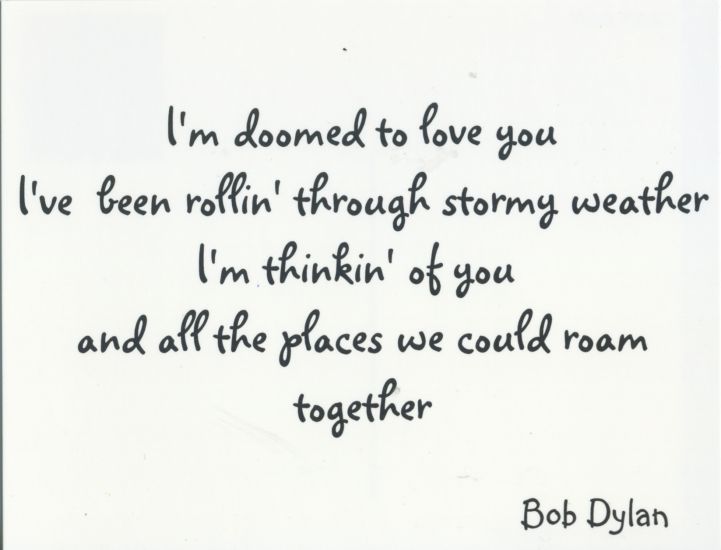 I'm doomed to love you
I've been rollin' through stormy weather
I'm thinkin' of you
and all the places we could roam
together
Bob Dylan